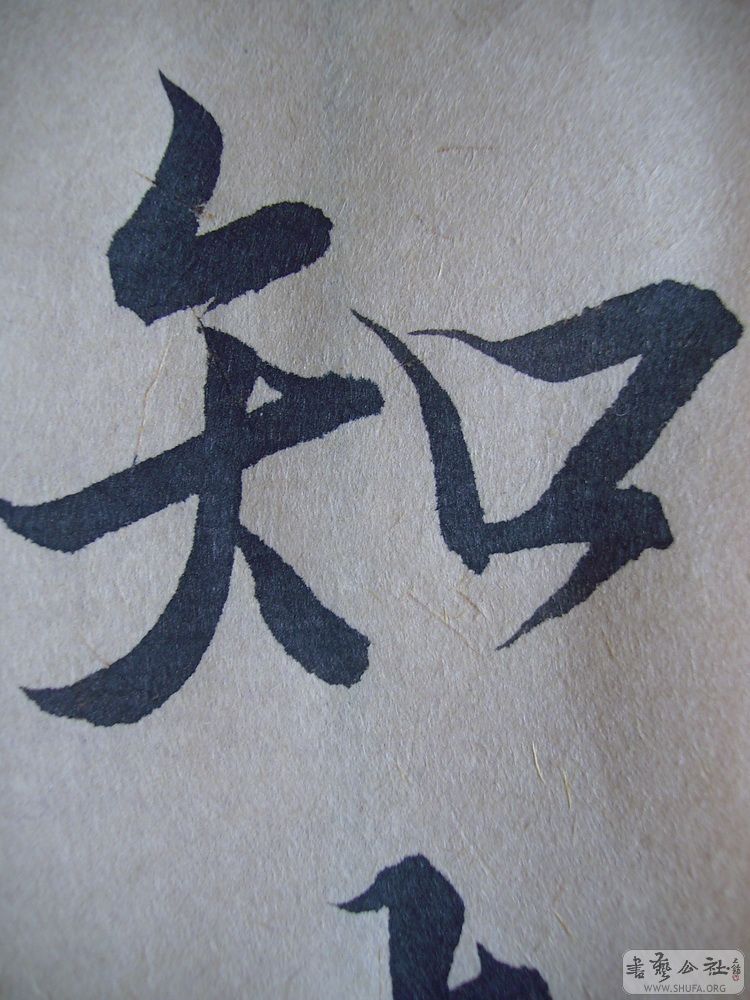 知
書藝公社
WWW.SHUFA.ORG